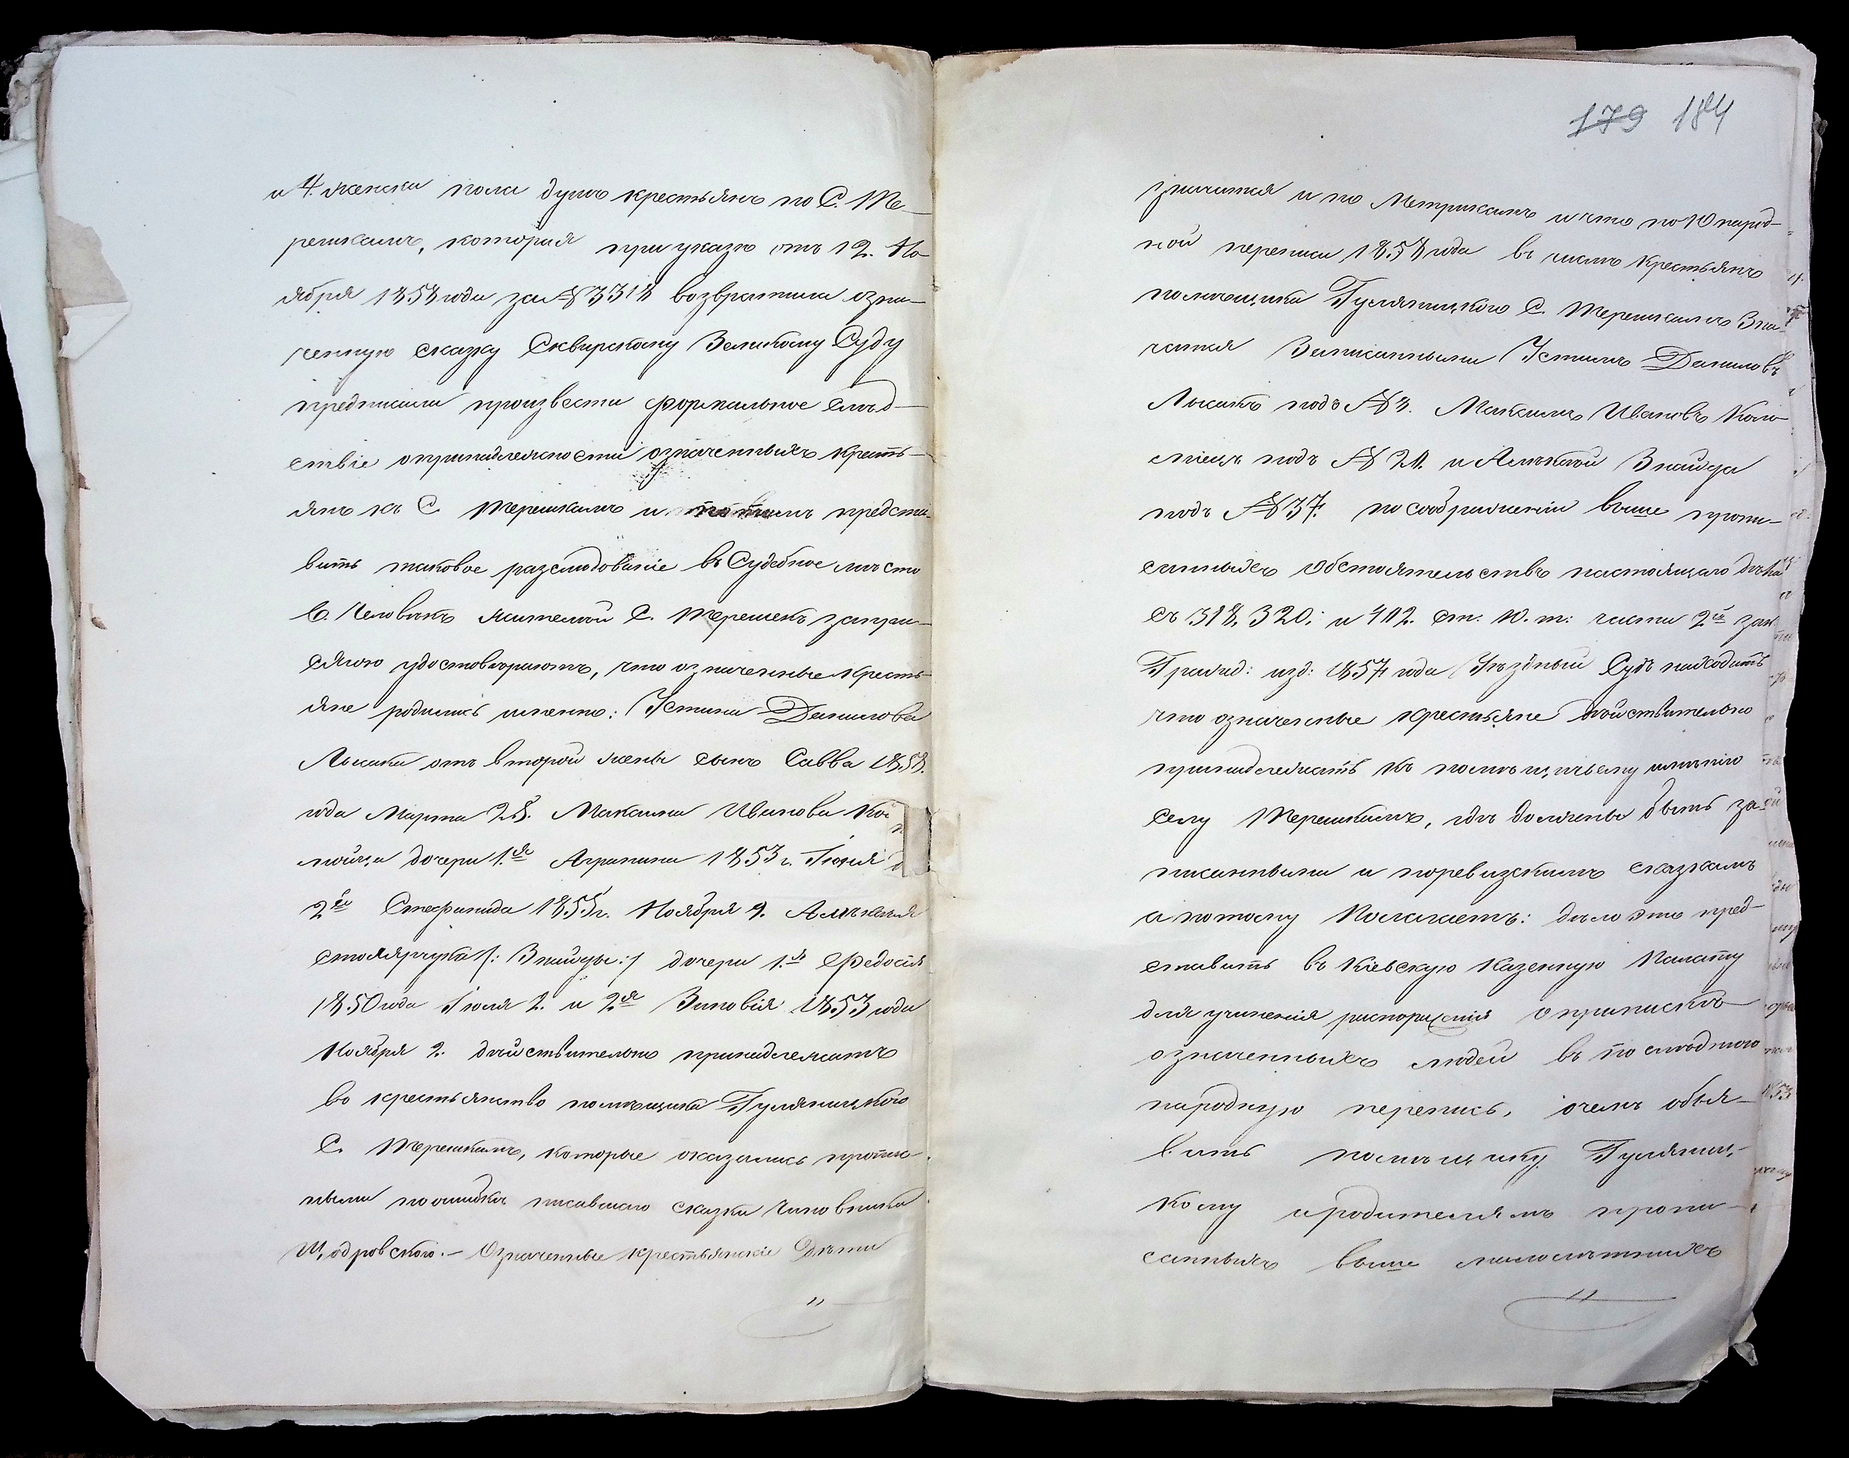 и 4. женска пола душъ крестьянъ по С. Те-
решкамъ, которая при указѣ отъ 12. Но-
ября 1858 года за № 3318 возвратила озна-
ченную сказку Сквирскому Земскому Суду
предписала произвести формальное слѣд-
ствіе о принадлежности означенныхъ кресть-
янъ къ С. Терешкамъ и потомъ предста-
вить таковое разслѣдованіе въ Судебное мѣсто
6. Человѣкъ жителей С. Терешекъ за при-
сягою удостовѣряютъ, что означенные кресть-
яне родились именно: Устина Данилова
Лысака отъ второй жены сынъ Савва 1858.
года Марта 28. Максима Иванова Ко
мойца дочери 1.я Агрипина 1853 г. Іюня
2ая Стефанида 1855 г. Ноября 9. Алексѣя
столярчука /: Знайды :/ дочери 1.я Федосія
1850 года Іюля 2. и 2.я Зиновія 1853 года
Ноября 2. дѣйствительно принадлежатъ
во крестьянство помѣщика Гуляницкого
С. Терешкамъ, которые оказались пропи-
ными по ошибкѣ писавшаго сказки Чиновника
Щодровского. — Означенные крестьянскіе Дѣти
179 184
значатся и по Метрикамъ и что по 10 народ-
ной переписи 1858 года въ числѣ крестьянъ
помѣщика Гуляницкого С. Терешкамъ Зна-
чатся Записанными Устимъ Даниловъ
Лысакъ подъ № 3. Максимъ Ивановъ Коло
мiецъ подъ № 21. и Алексѣй Знайда
подъ № 37. по соображеніи выше пропи-
санныхъ обстоятельствъ настоящаго дѣла
съ 318, 320; и 412. ст. 10. т: части 2й зак
Гражд: изд: 1857 года Уѣздный Судъ находитъ
что означенные крестьяне дѣйствительно
принадлежатъ къ помѣщичьему имѣнію
Селу Терешкамъ, гдѣ должны быть за-
писанными и по ревизскимъ сказкамъ
а потому Полагаетъ: дѣло это пред-
ставить въ Кіевскую Казенную Палату
для учиненія распоряженія о припискѣ
означенныхъ людей въ послѣднюю
народную перепись, о чемъ объя-
вить помѣщику Гуляниц-
кому и родителямъ пропи-
санныхъ выше малолѣтнихъ